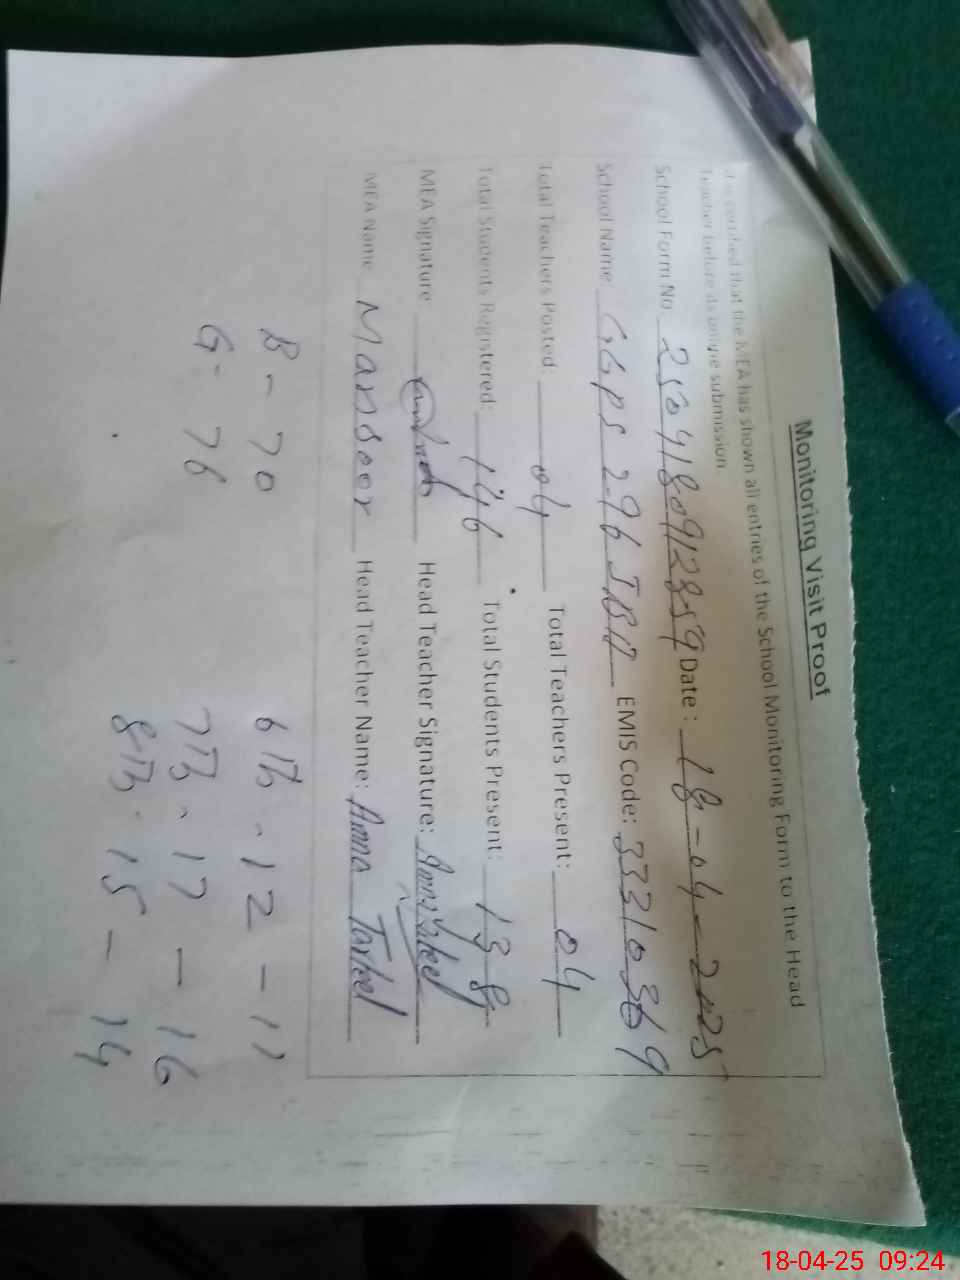 Monitoring Visit Proof
It is certified that the MEA has shown all entries of the School Monitoring Form to the Head
Teacher before its online submission.
School Form No 2504180912859 Date: 18-04-2025
School Name: GGPS 296 JB EMIS Code: 33310369
Total Teachers Posted: 04 Total Teachers Present: 04
Total Students Registered: 146 Total Students Present: 138
MEA Signature: Head Teacher Signature:
MEA Name Mansoor Head Teacher Name: Amna
B- 70
G- 76
6th - 12 - 11
7th - 17 - 16
8th - 15 - 14
18-04-25 09:24